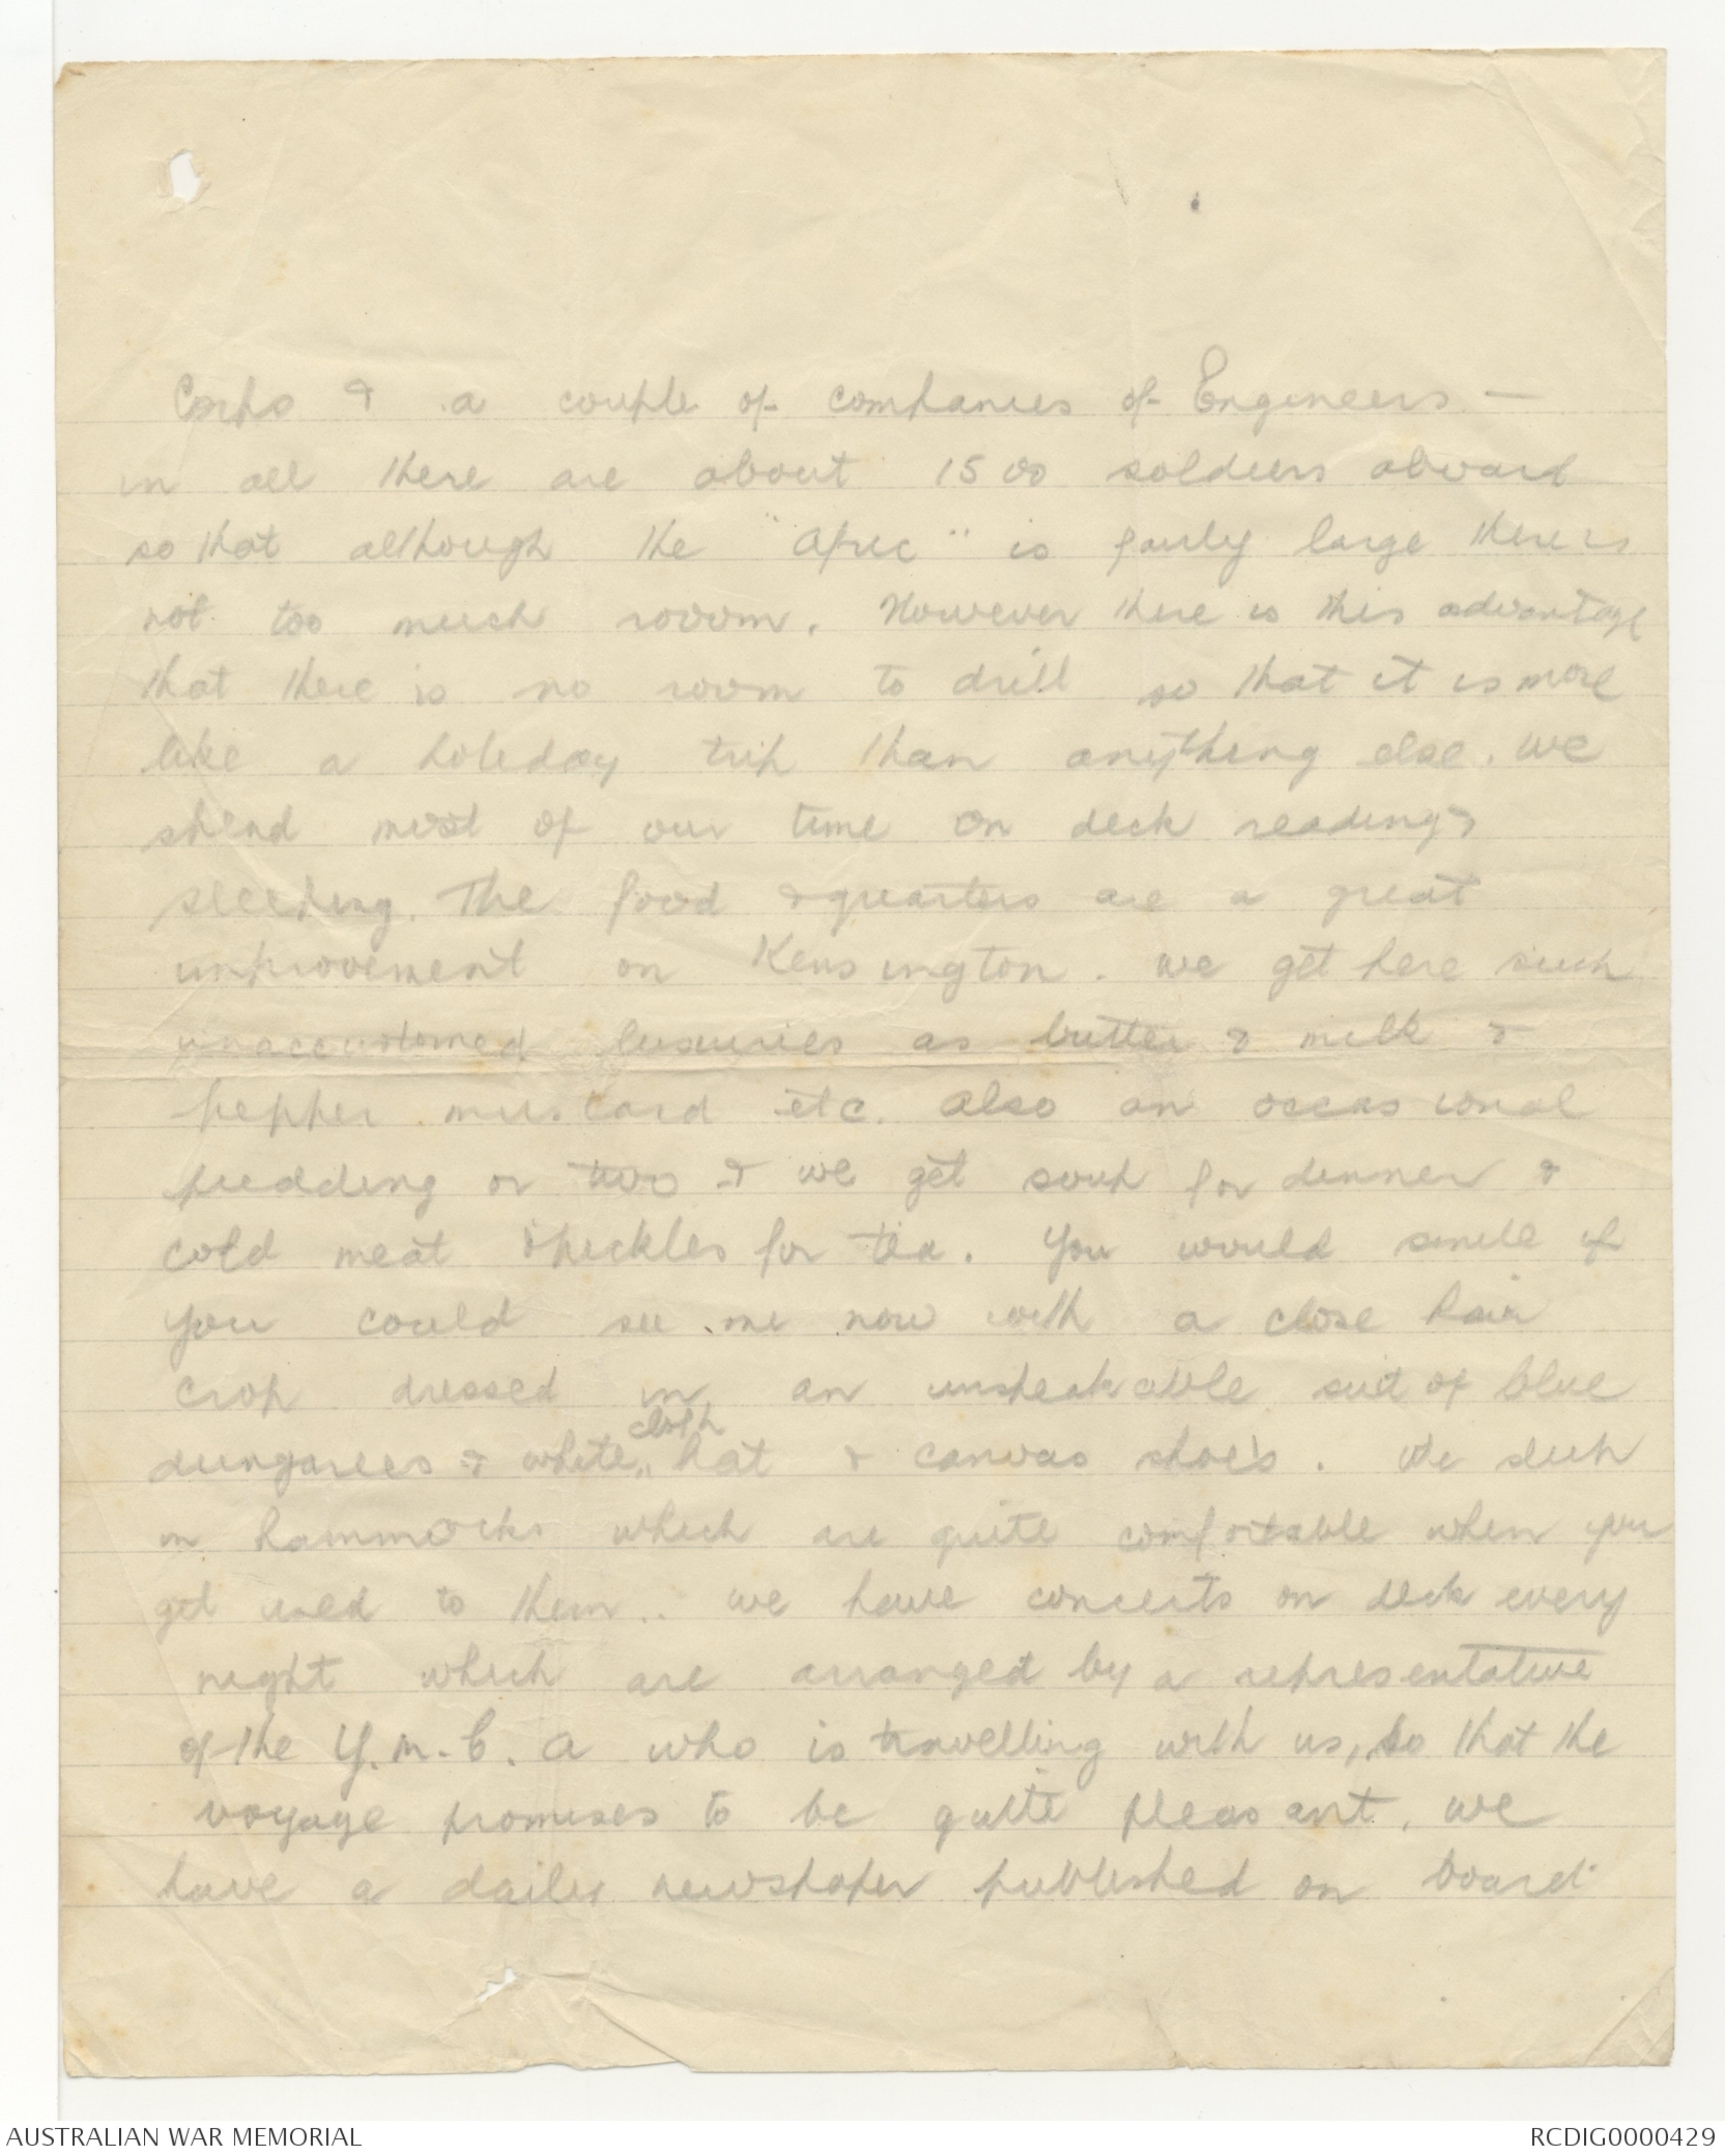 Corps & a couple of companies of Engineers —
in all there are about 1500 soldiers aboard
so that although the "Afric" is fairly large there is
not too much rooom. However there is this advantage
that there is no room to drill so that it is more
like a holiday trip than anything else. We
spend most of our time on deck reading &
sleeping. The food & quarters are a great
improvement on Kensington. We get here such
unaccustomed luxuries as butter & milk &
pepper mustard etc. Also an occasional
pudding or two & we get soup for dinner &
cold meat & pickles for tea. You would smile if
you could see me now with a close hair
crop dressed in an unspeakable suit of blue
cloth
dungarees & white,, hat & canvas shoes. We sleep
in hammocks which are quite comfortable when you
get used to them.. We have concerts on deck every
night which are arranged by a representative
of the Y.M.C.A who is travelling with us, so that the
voyage promises to be quite pleasant. We
have a daily newspaper published on board
AUSTRALIAN WAR MEMORIAL
RCDIG0000429